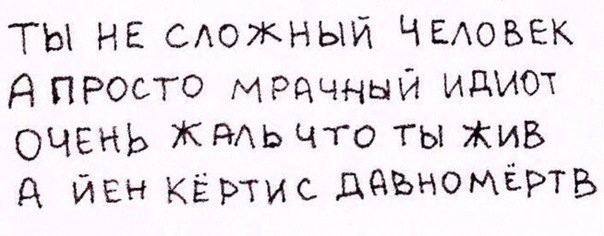 ТЫ НЕ СЛОЖНЫЙ ЧЕЛОВЕК
А ПРОСТО МРАЧНЫЙ ИДИОТ
ОЧЕНЬ ЖАЛЬ ЧТО ТЫ ЖИВ
А ЙЕН КЁРТИС ДАВНО МЁРТВ